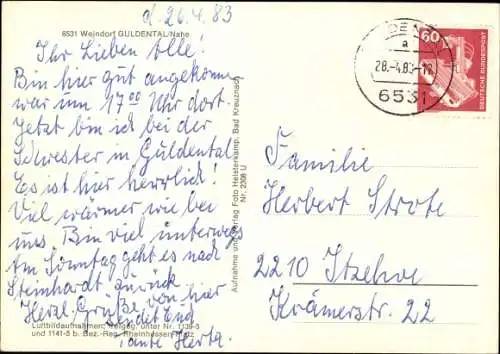 d. 26.4.83
6531 Weindorf GULDENTAL/Nahe
Ihr Lieben Alle!
Bin hier gut angekomm
war um 17⁰⁰ Uhr dort
Jetzt bin ich bei der
Schwester in Guldental
Es ist hier herrlich!
Viel wärmer wie bei
uns. Bin viel unterwegs
Am Sonntag geht es nach
Steinhardt zurück
Herzl. Grüße von hier
sendet Euch
Tante Herta.
Luftbildaufnahmen: freigeg. unter Nr. 1139-3
und 1141-3 b. Bez.-Reg. Rheinhessen-Pfalz
Aufnahme und Verlag Foto Heisterkamp, Bad Kreuznach
Nr. 2308 U
a
28.-4.83-17
6531
60
DEUTSCHE BUNDESPOST
Familie
Herbert Strote
2210 Itzehoe
Krämerstr. 22